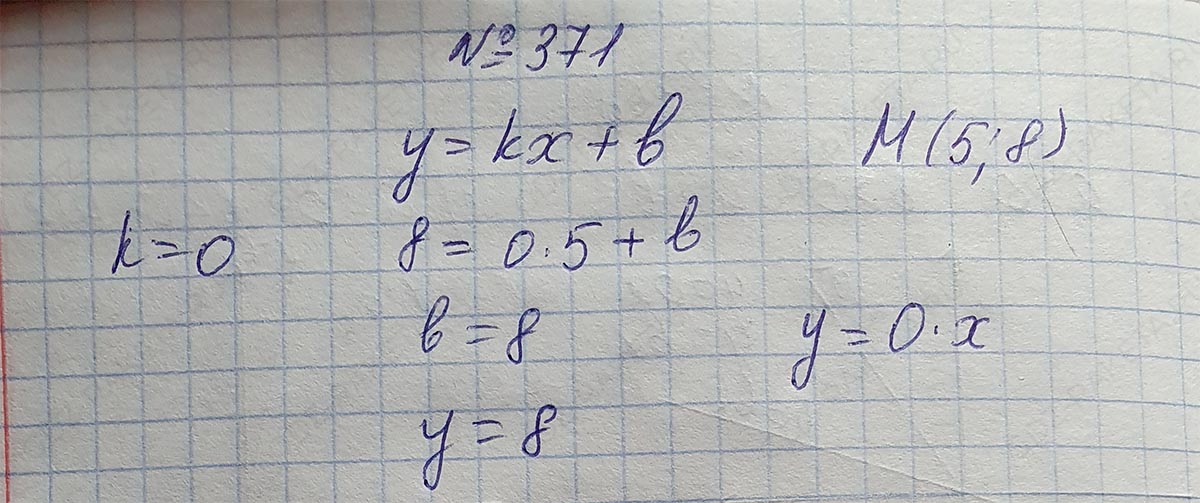 № 371
y = kx + b M (5; 8)
k = 0 8 = 0 · 5 + b
b = 8 y = 0 · x
y = 8